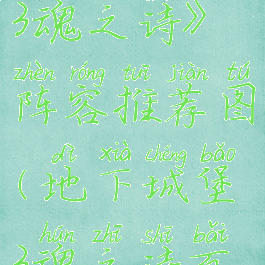 3魂之诗》
zhèn róng tuī jiàn tú
阵容推荐图
dì xià chéng bǎo
(地下城堡
hún zhī shī bǎi
3魂之诗百